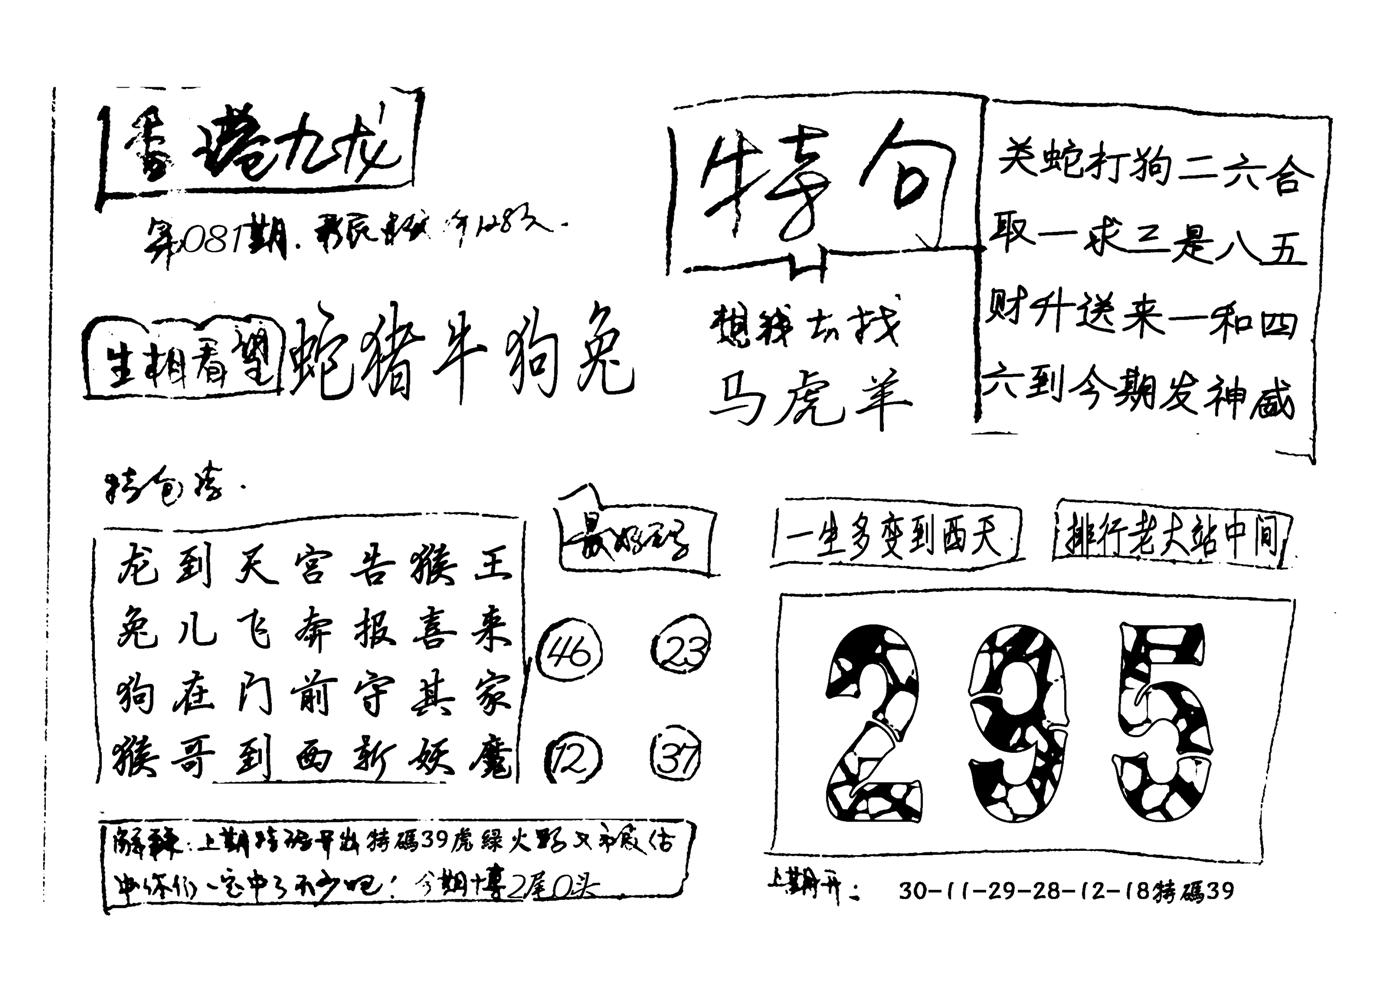 香港九龙
第081期.
生相看望 蛇猪牛狗兔
特句
想钱去找
马虎羊
关蛇打狗二六合
取一求三是八五
财升送来一和四
六到今期发神威
特包
龙到天宫告猴王
兔儿飞奔报喜来
狗在门前守其家
猴哥到西斩妖魔
最好
46 23
12 37
一生多变到西天
排行老大站中间
295
解: 上期特码开出特碼39虎緑火 又
中你们一定中了不少吧! 今期博2尾0头
上期开: 30-11-29-28-12-18特碼39